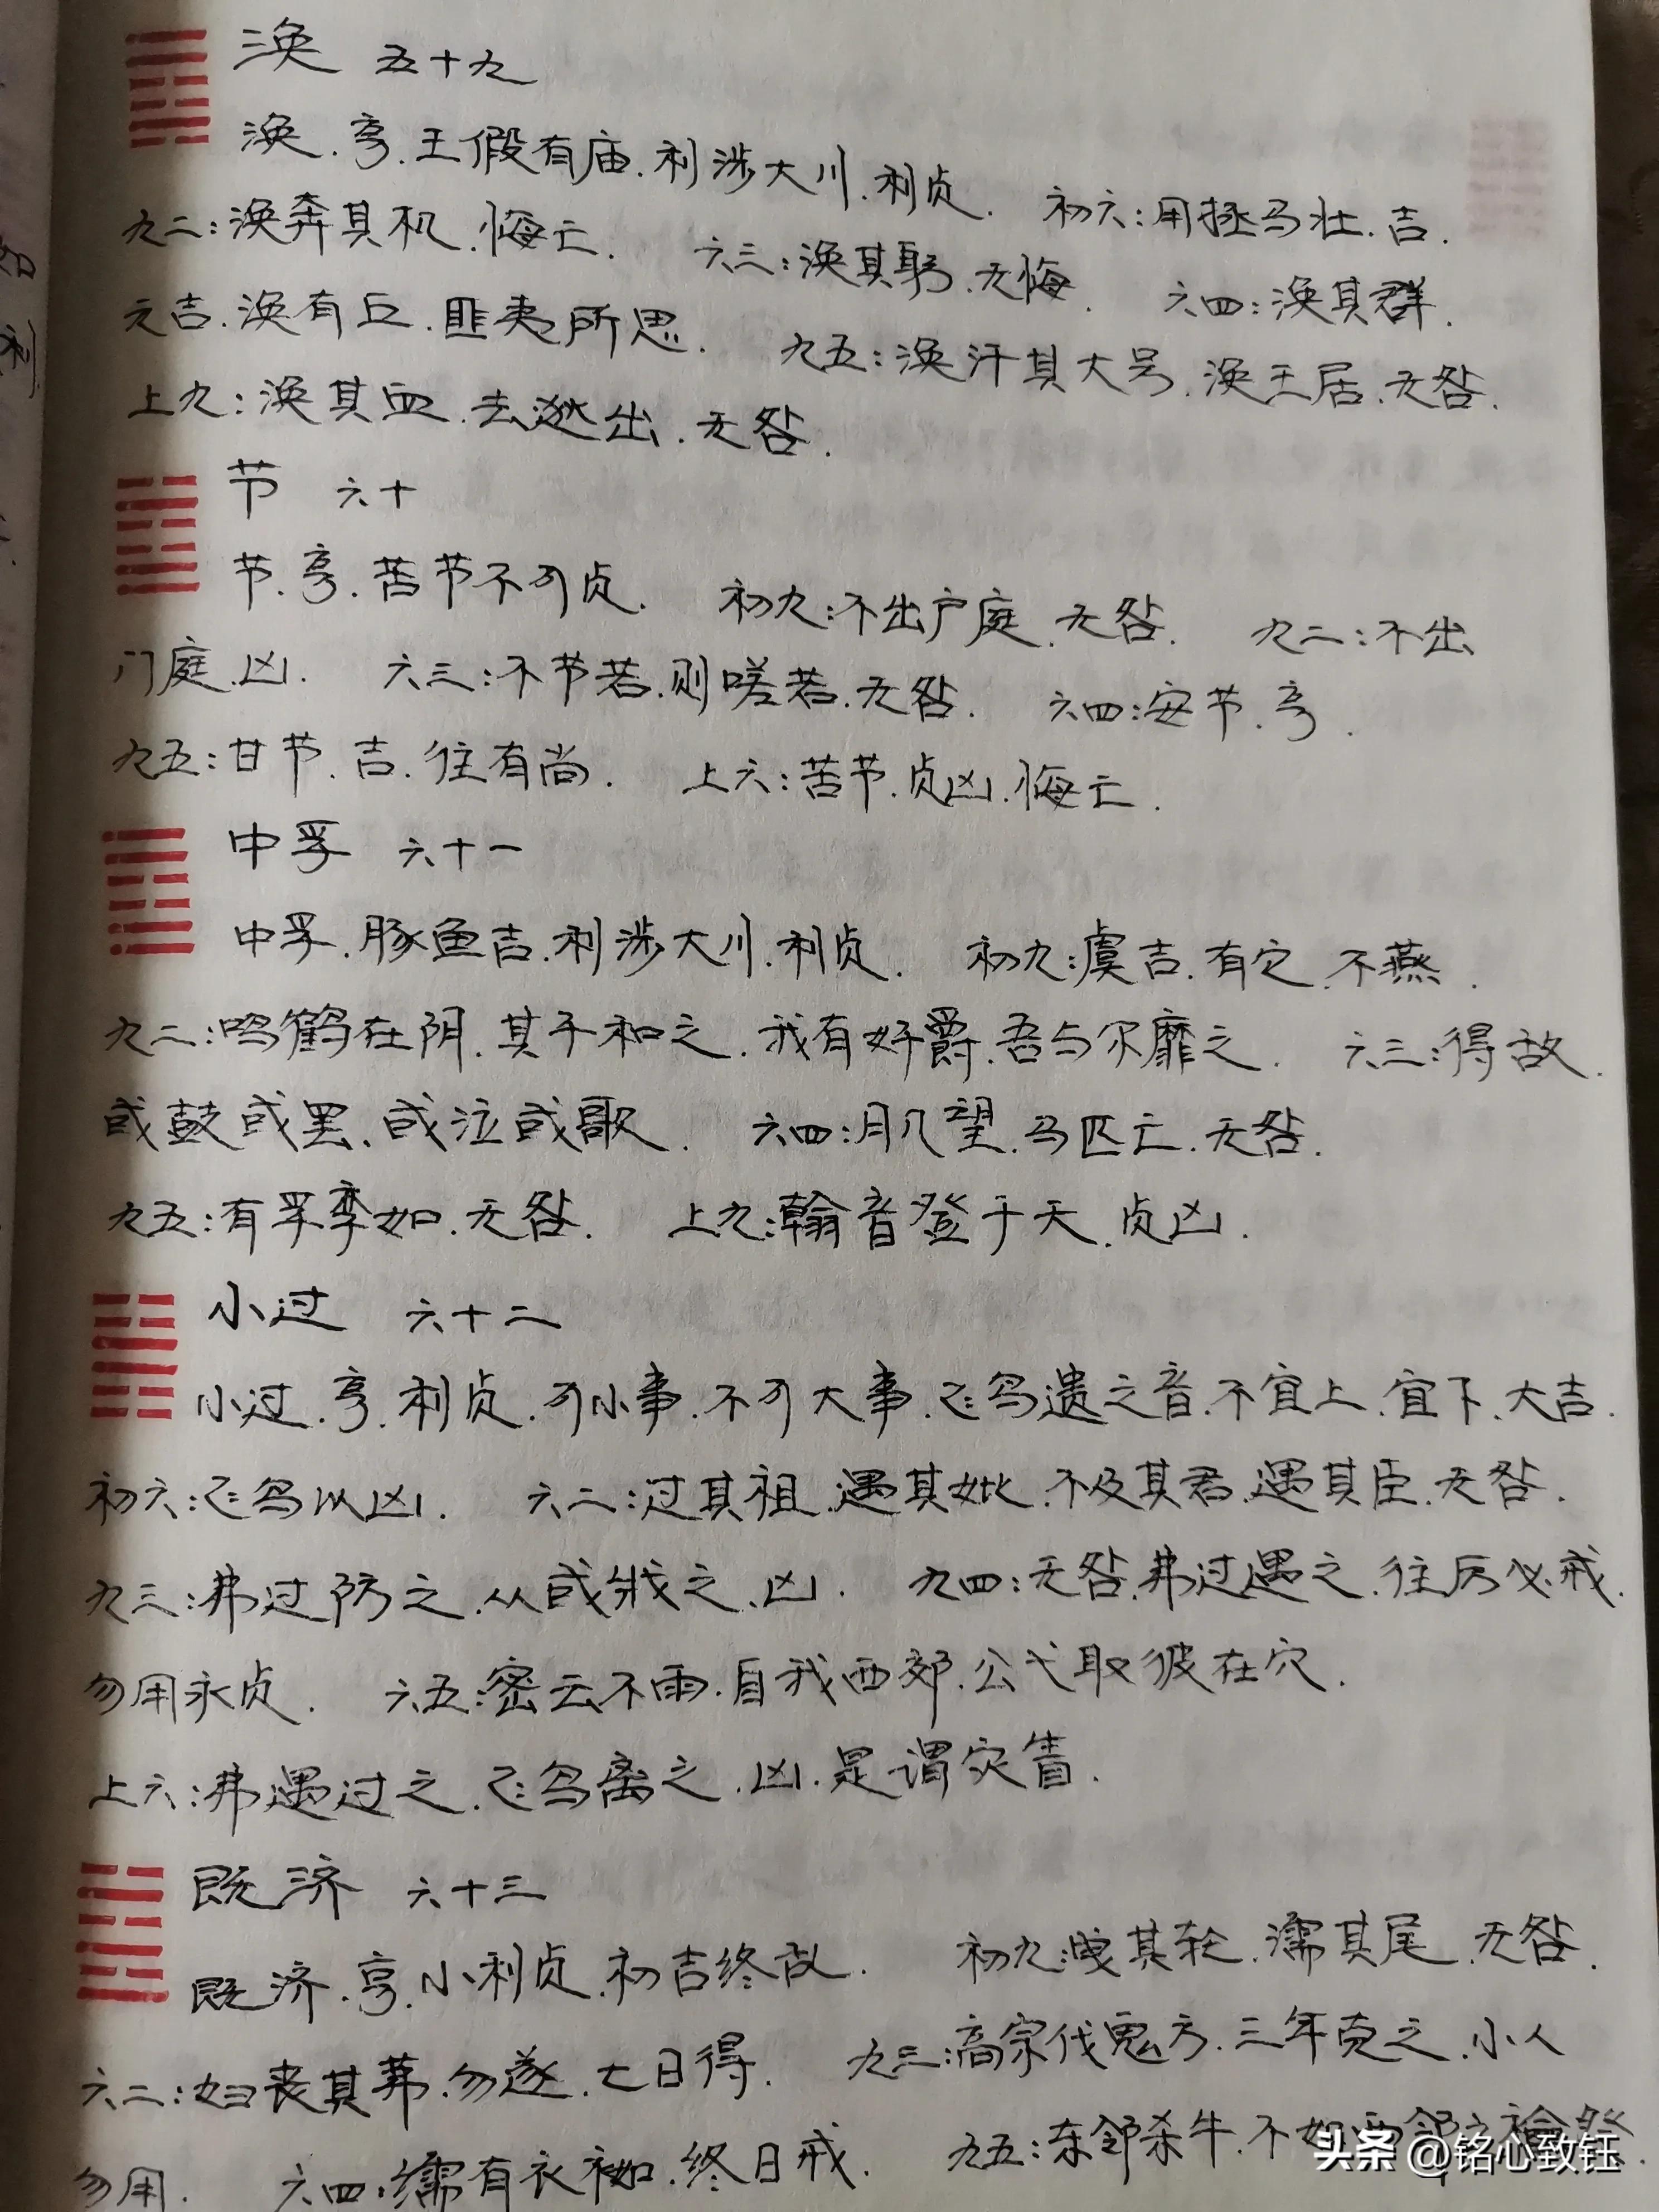 涣 五十九
涣.亨.王假有庙.利涉大川.利贞. 初六:用拯马壮.吉.
九二:涣奔其机.悔亡. 六三:涣其躬.无悔. 六四:涣其群.
元吉.涣有丘.匪夷所思. 九五:涣汗其大号.涣王居.无咎.
上九:涣其血.去逖出.无咎.
节 六十
节.亨.苦节不可贞. 初九:不出户庭.无咎. 九二:不出
门庭.凶. 六三:不节若.则嗟若.无咎. 六四:安节.亨.
九五:甘节.吉.往有尚. 上六:苦节.贞凶.悔亡.
中孚 六十一
中孚.豚鱼吉.利涉大川.利贞. 初九:虞吉.有它.不燕.
九二:鸣鹤在阴.其子和之.我有好爵.吾与尔靡之. 六三:得敌.
或鼓或罢、或泣或歌. 六四:月几望.马匹亡.无咎.
九五:有孚挛如.无咎. 上九:翰音登于天.贞凶.
小过 六十二
小过.亨.利贞.可小事.不可大事.飞鸟遗之音.不宜上.宜下.大吉.
初六:飞鸟以凶. 六二:过其祖.遇其妣.不及其君.遇其臣.无咎.
九三:弗过防之.从或戕之.凶. 九四:无咎.弗过遇之.往厉必戒.
勿用永贞. 六五:密云不雨.自我西郊.公弋取彼在穴.
上六:弗遇过之.飞鸟离之.凶.是谓灾眚.
既济 六十三
既济.亨.小利贞.初吉终乱. 初九:曳其轮.濡其尾.无咎.
六二:妇丧其茀.勿逐.七日得. 九三:高宗伐鬼方.三年克之.小人
勿用. 六四:繻有衣袽.终日戒. 九五:东邻杀牛.不如西邻之禴祭.
头条 @铭心致钰